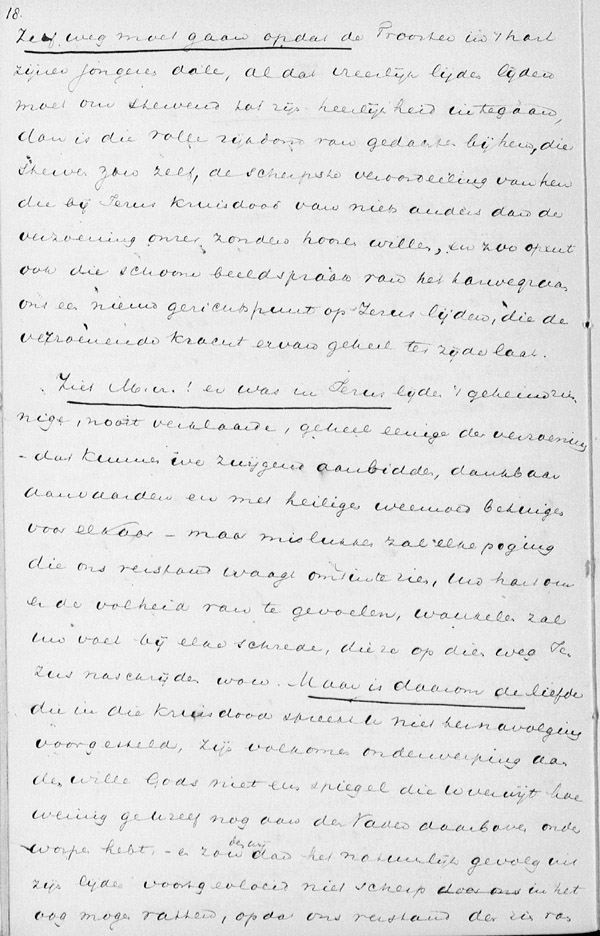 18.
Zelf weg moet gaan opdat de Trooster in 't hart
zijner jongeren dale, al dat vreeslijk lijden lijden
moet om stervend tot zijn heerlijkheid in te gaan,
dan is die volle rijkdom van gedachten bij hem, die
sterven zou zelf, de scherpste veroordeeling van hen
die bij Jezus kruisdood van niets anders dan de
verzoening onzer zonden hooren willen, en zoo opent
ook die schoone beeldspraak van het tarwegraan
ons een nieuw gezichtspunt op Jezus lijden, die de
verzoenende kracht ervan geheel ter zijde laat.
Ziet M. ! er was in Jezus lijden 't geheimzin
nige, nooit verklaarde, geheel eenige der verzoening
- dat kunnen we zwijgend aanbidden, dankbaar
aanvaarden en met heilige weemoed betuigen
voor elkaar - maar mislukken zal elke poging
die ons verstand waagt om 't in te zien, uw hart om
er de volheid van te gevoelen, wankelen zal
uw voet bij elke schrede, die ze op dien weg Je
zus naschrijden wou. Maar is daarom de liefde
die in die kruisdood spreekt u niet ter navolging
voorgesteld, zijn volkomen onderwerping aan
den wille Gods niet een spiegel die u verwijt hoe
weinig ge uzelf nog aan den Vader daarboven onder
worpen hebt, - en zouden wij dan het natuurlijk gevolg uit
zijn lijden voortgevloeid niet scherp in het
oog mogen vatten, opdat ons verstand den zin van